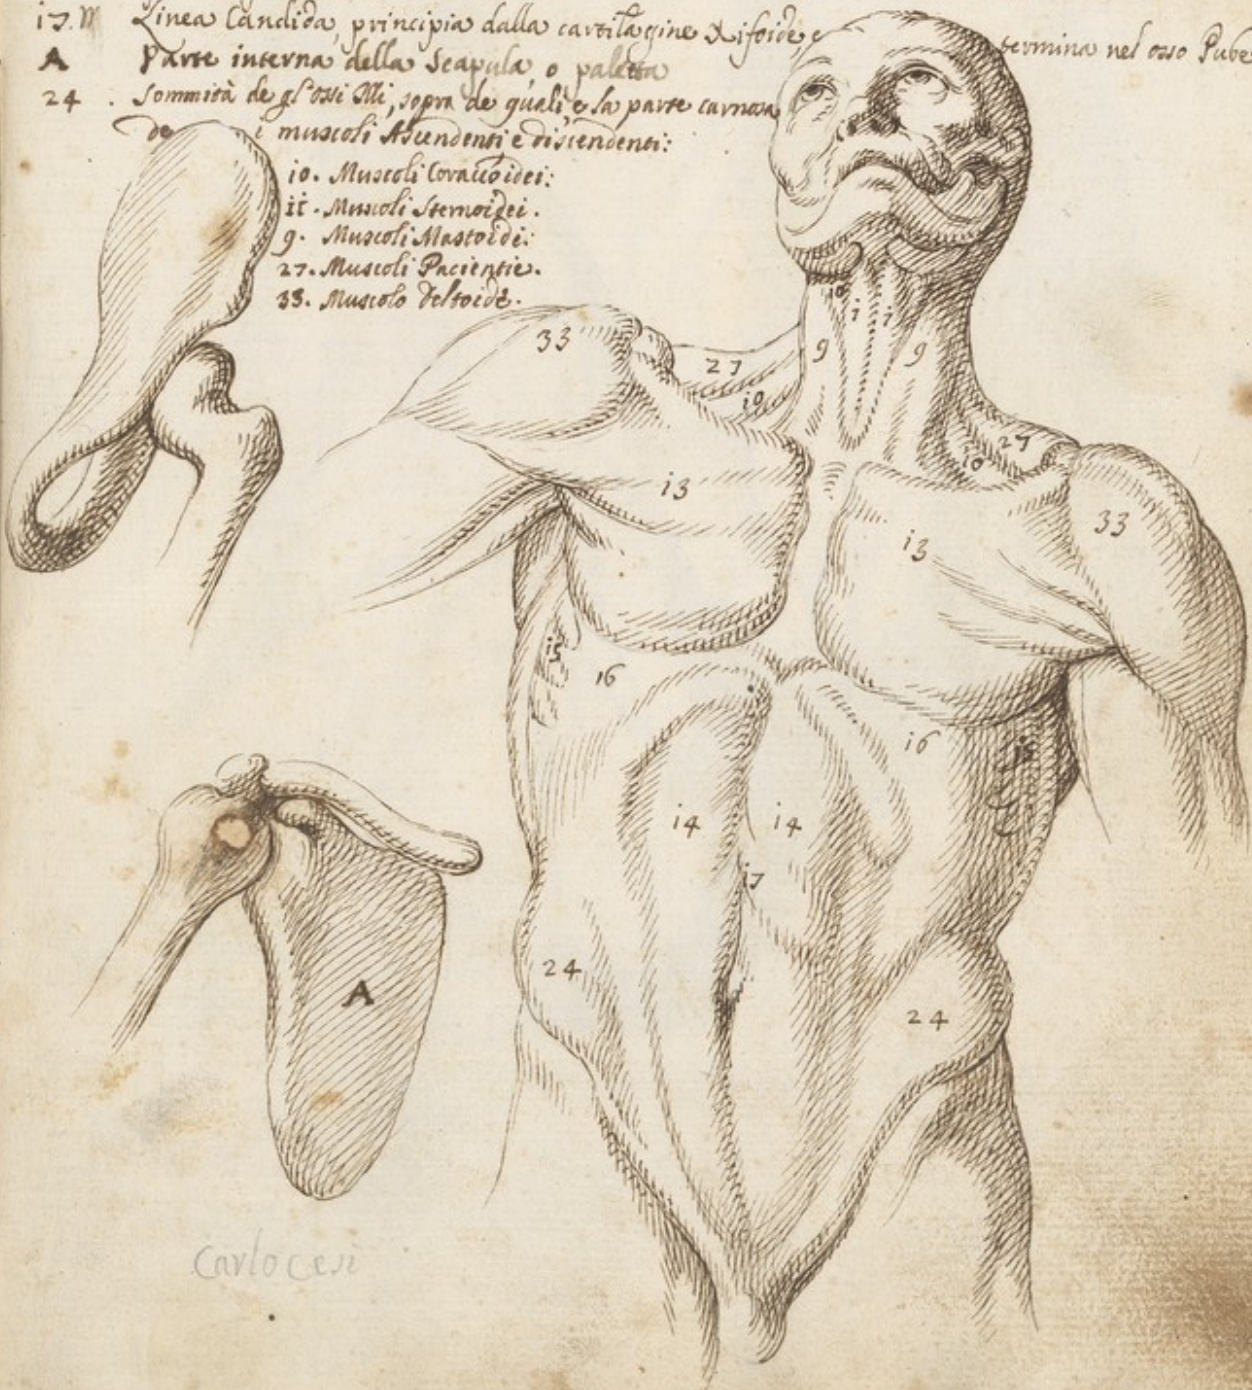 17. Linea Candida, principia dalla cartilagine Xifoide e termina nel osso Pube
A Parte interna della Scapula, o paletta
24. Sommità de gl'ossi Ili, sopra de quali, e la parte carnosa
de i muscoli Ascendenti e discendenti:
10. Muscoli Coraccoidei:
11. Muscoli Sternoidei.
9. Muscoli Mastoidei:
27. Muscoli Pacientie.
33. Muscolo Deltoide.
10 7 7
33 27 9 9
10 27
10
13 33
13
15 16
16 15
14 14
17
24 A
24
Carlo Cesi